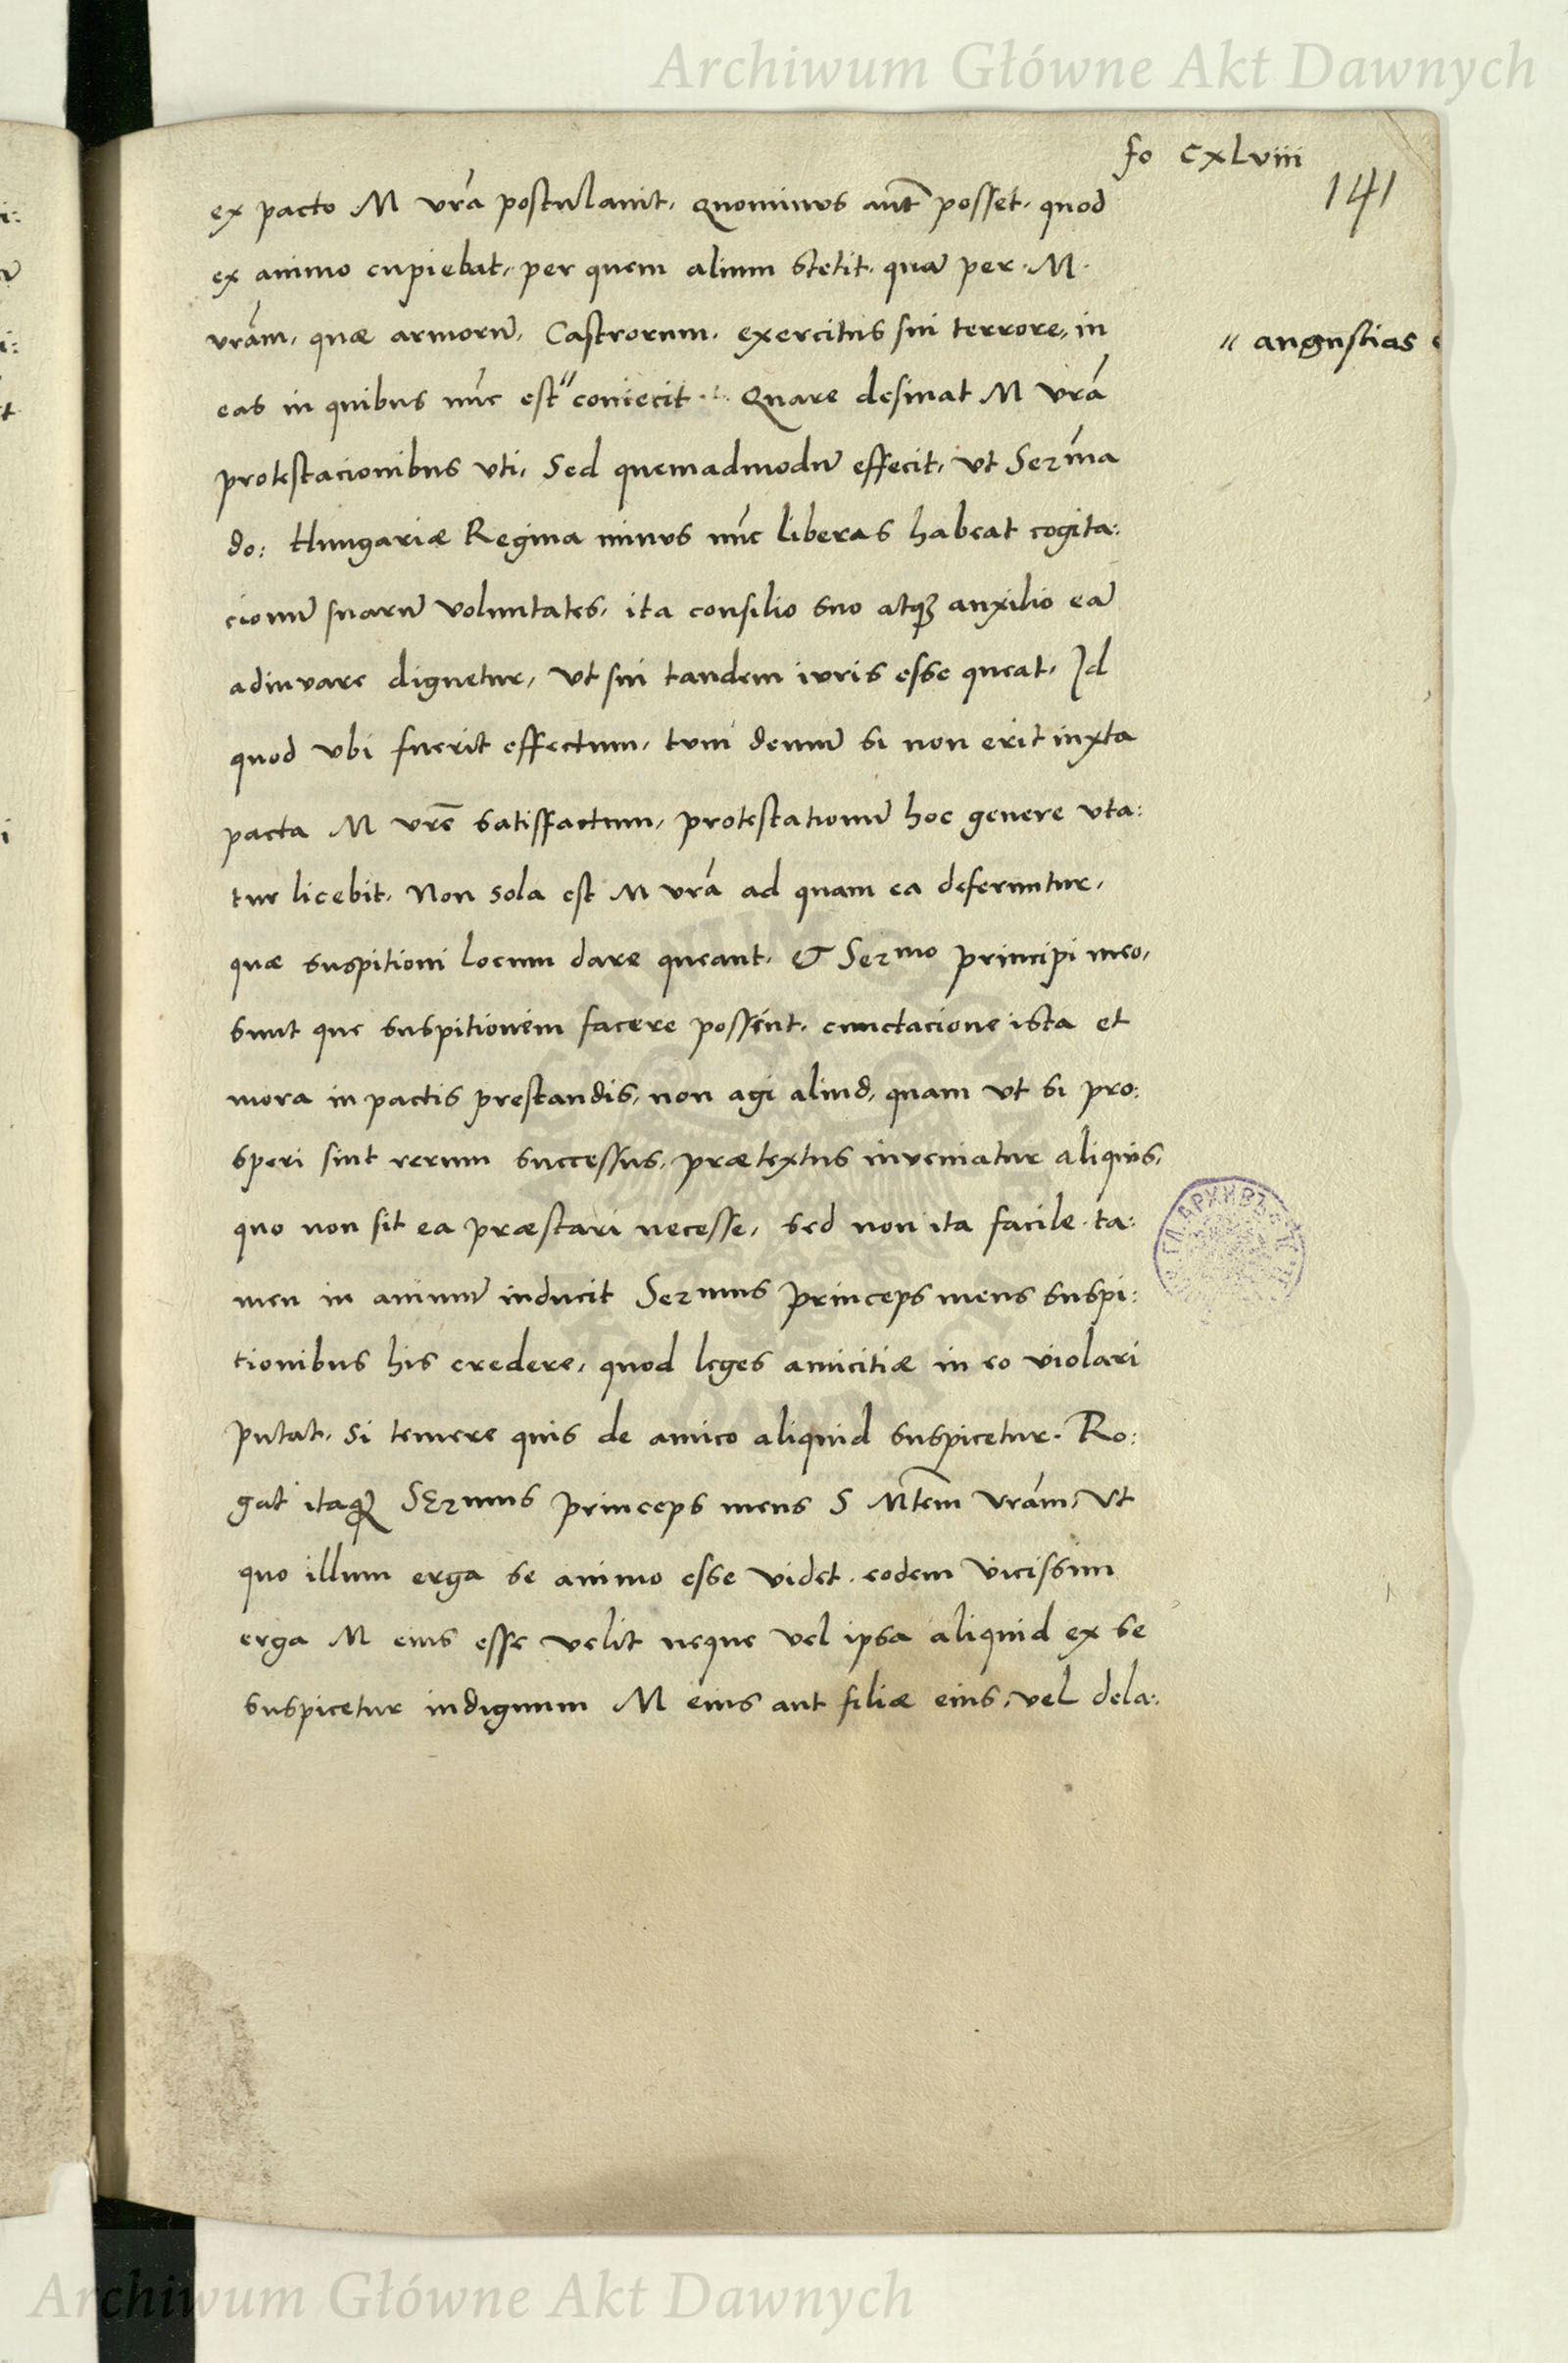 Archiwum Główne Akt Dawnych
fo CXLviii
141
ex pacto M vrã postulauit, Quominus aut̃ posset, quod
ex animo cupiebat, per quem alium stetit, quã per M.
vrãm, quæ armorũ, Castrorum, exercitus sui terrore, in
" angustias
eas in quibus nũc est" coniecit. Quare desinat M vrã
protestacionibus vti, Sed quemadmodũ effecit, vt Serm̃a
do: Hungariæ Regina minus nũc liberas habeat cogita:
cionũ suarũ voluntates, ita consilio suo atqꝫ auxilio eã
adiuvare dignetur, vt sui tandem iuris esse queat, Id
quod vbi fuerit effectum, tum demũ si non erit iuxta
pacta M vrẽ satisffactum, protestationũ hoc genere vta:
tur licebit. Non sola est M vrã ad quam ea deferuntur,
quæ suspitioni locum dare queant, & Sermo principi meo,
sunt que suspitionem facere possent, cunctacione ista et
mora in pactis prestandis, non agi aliud, quam vt si pro:
speri sint rerum successus, prætextus inveniatur aliquis,
quo non sit ea præstari necesse, sed non ita facile ta:
men in animũ inducit Sermus princeps meus suspi:
tionibus his credere, quod leges amicitiæ in eo violari
putat, si temere quis de amico aliquid suspicetur. Ro:
gat itaqꝫ Sermus princeps meus S Mt̃em vrãm, vt
quo illum erga se animo esse videt, eodem vicissim
erga M eius esse velit neque vel ipsa aliquid ex se
suspicetur indignum M eius aut filiæ eius, vel dela:
Archiwum Główne Akt Dawnych